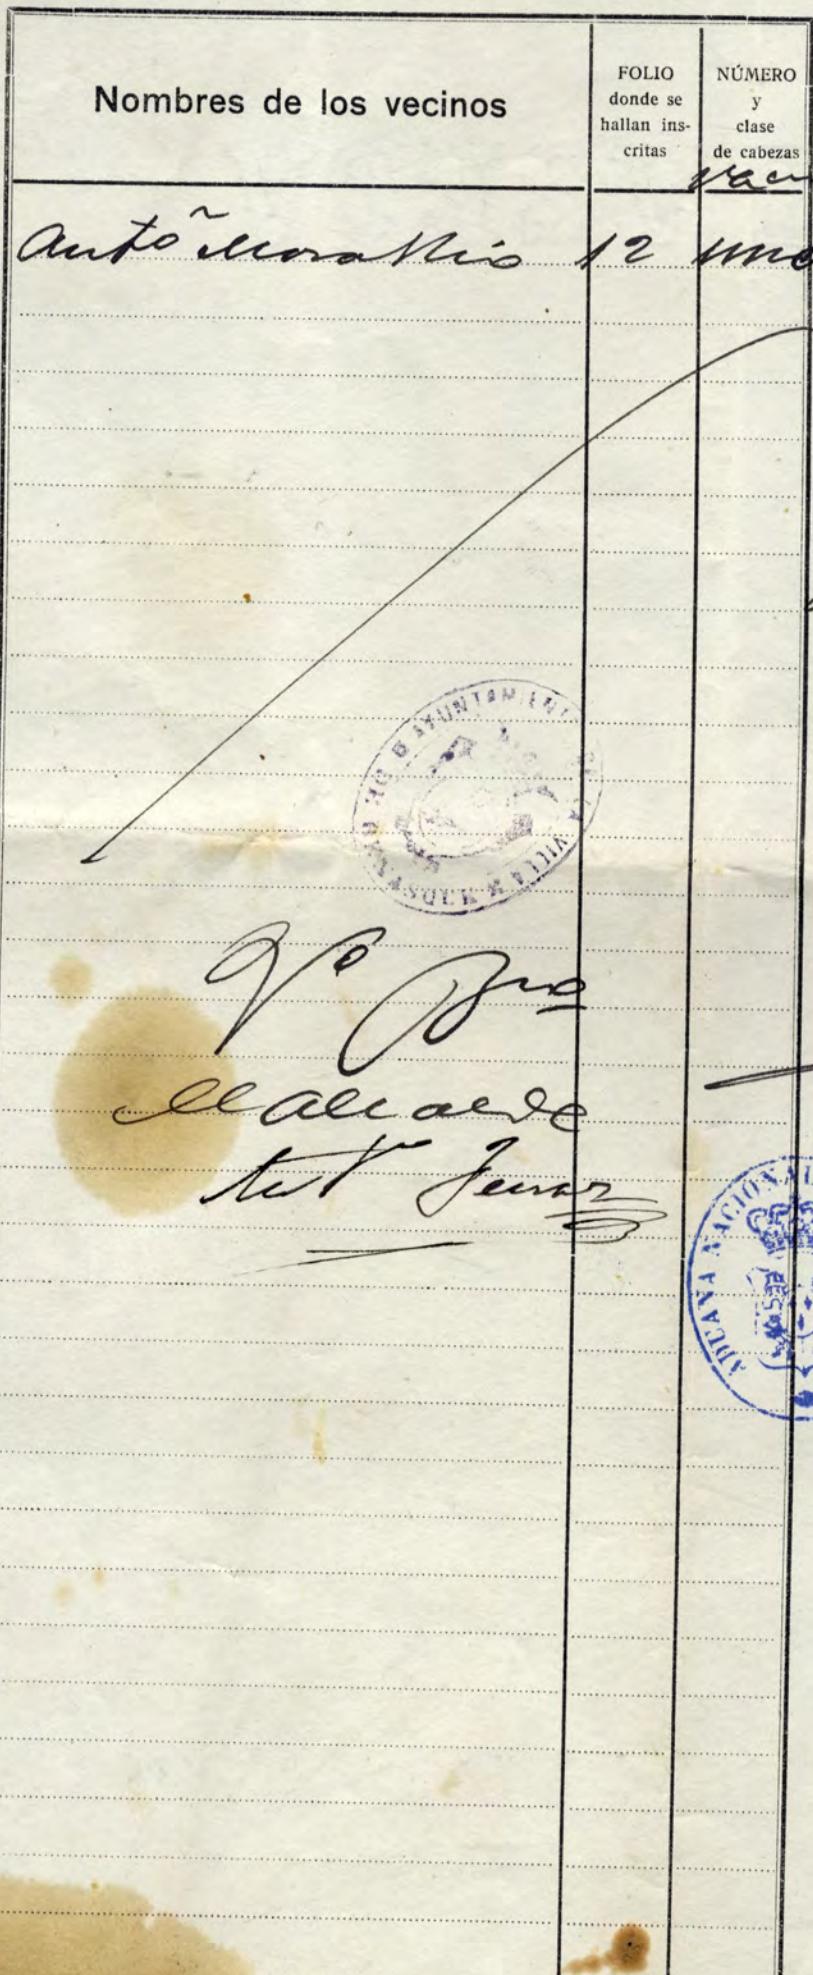 Nombres de los vecinos
FOLIO
donde se
hallan ins-
critas
NÚMERO
y
clase
de cabezas
Antº Mora 12 una
AYUNTAMIENTO DE LA VILLA
Vº Bno
El Alcalde
ADUANA NACIONAL